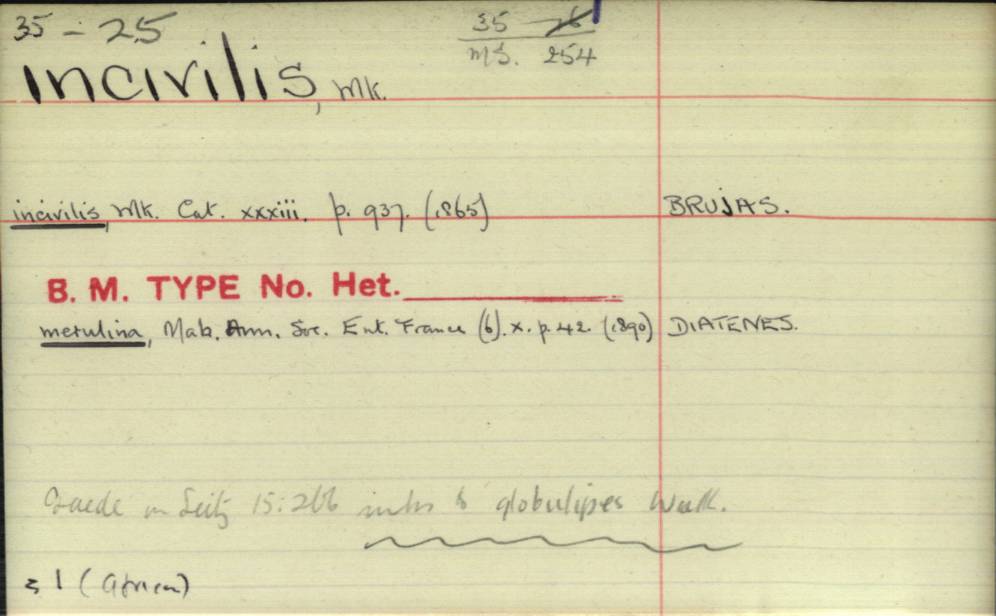 35 - 25
35 26
MS. 254
incivilis, Wlk.
incivilis, Wlk. Cat. xxxiii. p. 937. (1865) BRUJAS.
B. M. TYPE No. Het.
metulina, Mab. Ann. Soc. Ent. France (6). x. p. 42 (1890) DIATENES.
Gaede in Seitz 15:266 to globulipes Walk.
1 (Africa)